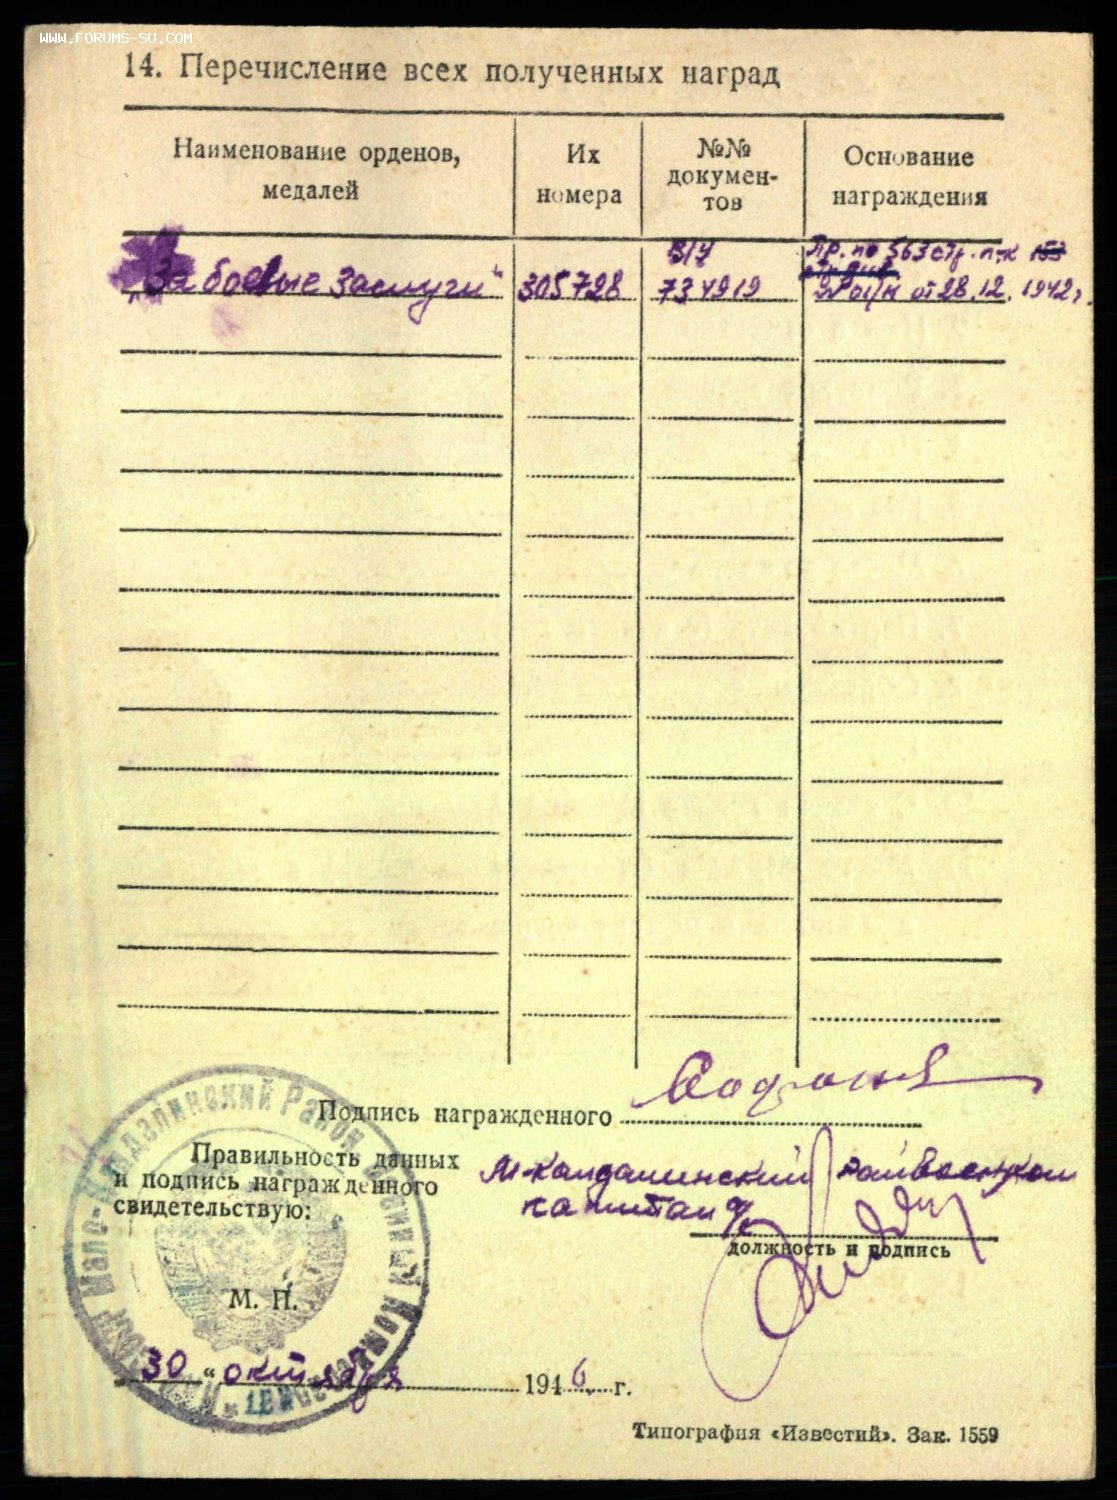 WWW.FORUMS-SU.COM
14. Перечисление всех полученных наград
Наименование орденов, медалей
Их номера
№№ докумен-тов
Основание награждения
„За боевые заслуги“ 305728
734919
Пр. по 563 стр. п-к
№ 01/н от 28.12.1942г.
Подпись награжденного
Правильность данных
и подпись награжденного
свидетельствую:
М-Кандалинский Райвоенком
капитан
должность и подпись
М. П.
30 „ октября 1946 г.
Типография «Известий». Зак. 1559